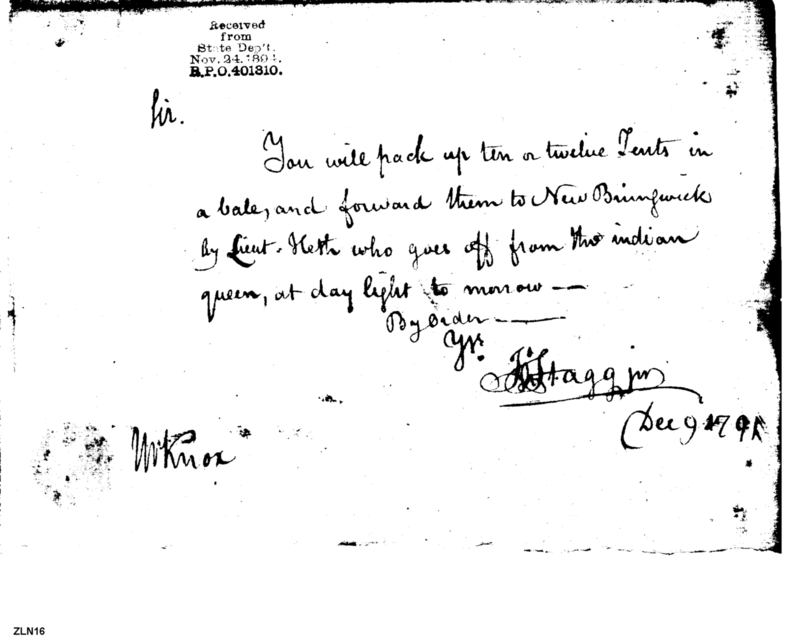 Received
from
State Dep't.
Nov. 24. 1894.
R.P.O. 401310.
Sir.
You will pack up ten or twelve Tents in
a bale, and forward them to New Brunswick
By Lieut. Heth who goes off from the indian
queen, at day light to morrow —
By order —
Yrs.
Jn Stagg jnr
Dec 9 1791
Mr Knox
ZLN16